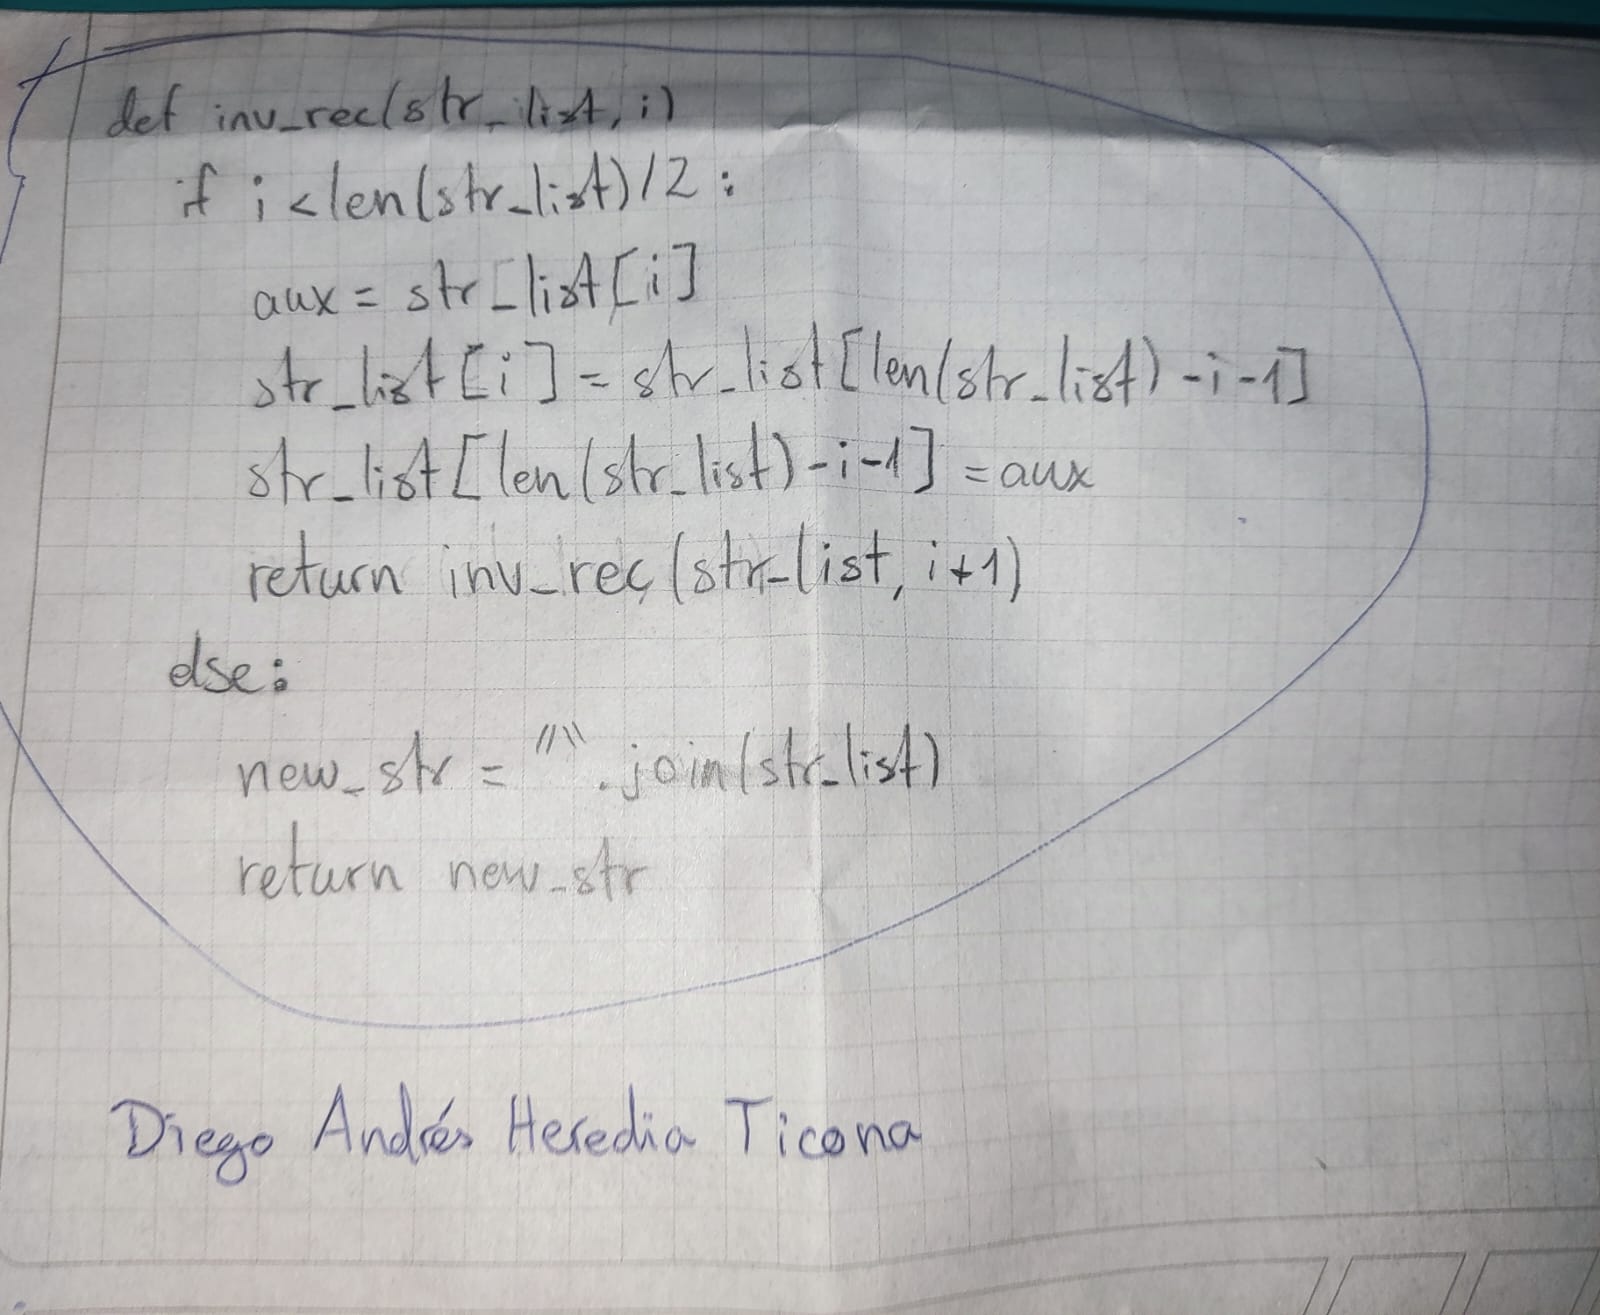 def inv_rec(str_list, i)
if i < len(str_list)/2 :
aux = str_list[i]
str_list[i] = str_list[len(str_list) - i - 1]
str_list[len(str_list) - i - 1] = aux
return inv_rec(str_list, i+1)
else:
new_str = "".join(str_list)
return new_str
Diego Andrés Heredia Ticona